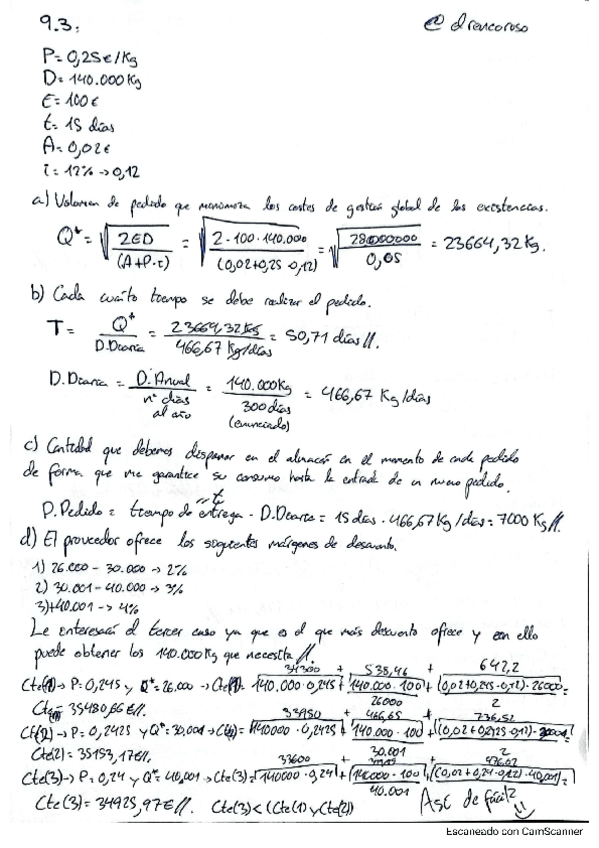 9.3:
@ elrencoroso
P= 0,25€/Kg
D= 140.000Kg
E= 100€
t= 15 días
A= 0,02€
i= 12% → 0,12
a) Volumen de pedido que minimiza los costes de gestión global de las existencias.
Q* = √(2ED / (A+P·i)) = √(2·100·140.000 / (0,02+0,25·0,12)) = √(28000000 / 0,05) = 23664,32Kg.
b) Cada cuánto tiempo se debe realizar el pedido.
T = Q* / D.Diaria = 23664,32Kg / 466,67 Kg/días = 50,71 días//.
D.Diaria = D.Anual / nº días al año = 140.000Kg / 300 días (enunciado) = 466,67 Kg/días
c) Cantidad que debemos disponer en el almacén en el momento de cada pedido
de forma que me garantice su consumo hasta la entrada de un nuevo pedido.
P.Pedido = tiempo de entrega "t" · D.Diaria = 15 días · 466,67 Kg/días = 7000 Kg//.
d) El proveedor ofrece los siguientes márgenes de descuento.
1) 26.000 - 30.000 → 2%
2) 30.001 - 40.000 → 3%
3) +40.001 -> 4%
Le interesará el tercer caso ya que es el que más descuento ofrece y con ello
puede obtener los 140.000Kg que necesita//.
34300 + 538,46 + 642,2
Cte(1) → P=0,245 y Q*=26.000 → Cte(1)= 140.000·0,245 + 140.000·100 / 26000 + (0,02+0,245·0,12)·26000 / 2 =
Cte = 35480,66€//.
33950 + 466,65 + 736,52
Ct(2) → P=0,2425 y Q*=30.001 → Ct()= 140000·0,2425 + 140.000·100 / 30.001 + (0,02+0,2425·0,12)·30001 / 2
Cte(2)= 35153,17€//.
33600
Cte(3) → P=0,24 y Q*=40,001 → Cte(3)= 140000·0,24 + 140.000·100 / 40.001 + (0,02+0,24·0,12)·40.001 / 2 =
Cte(3)= 34925,97€//. Cte(3) < (Cte(1) y Cte(2))
Así de fácil
Escaneado con CamScanner